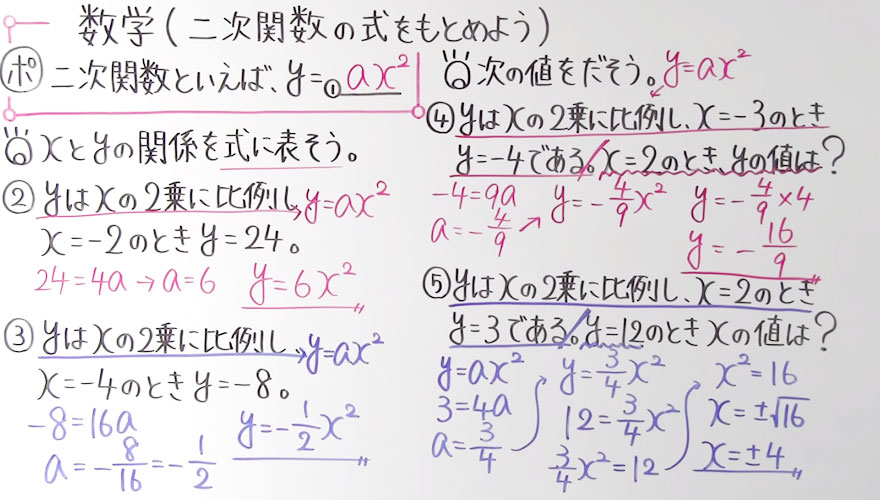 数学(二次関数の式をもとめよう)
ポ 二次関数といえば、y=①ax²
xとyの関係を式に表そう。
②yはxの2乗に比例し、→y=ax²
x=-2のときy=24。
24=4a→a=6 y=6x²
③yはxの2乗に比例し、→y=ax²
x=-4のときy=-8。
-8=16a
a=-8/16=-1/2
y=-1/2x²
次の値をだそう。y=ax²
④yはxの2乗に比例し、x=-3のとき
y=-4である。/x=2のとき、yの値は?
-4=9a
a=-4/9 ↗
y=-4/9x²
y=-4/9×4
y=-16/9
⑤yはxの2乗に比例し、x=2のとき
y=3である。/y=12のときxの値は?
y=ax²
3=4a
a=3/4
y=3/4x²
12=3/4x²
3/4x²=12
x²=16
x=±√16
x=±4